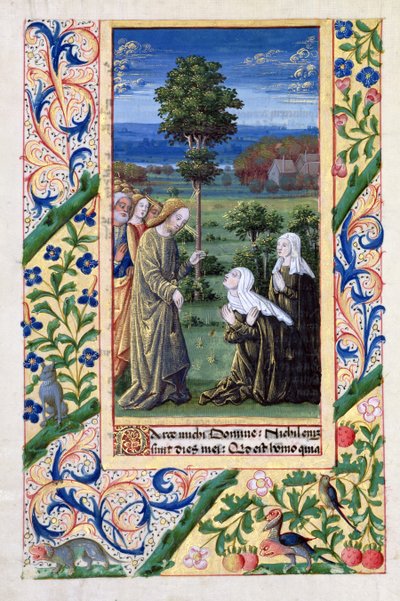 Parce michi Domine: Nichil eniz
sunt dies mei: Qd est homo quia